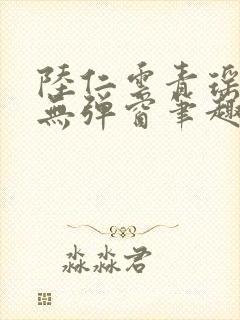 陸仁雲青瑶
無彈窗筆趣
淼淼君